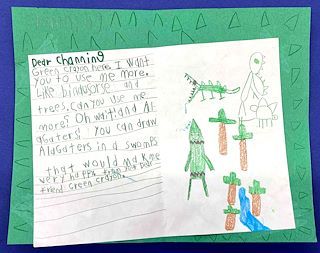 Dear Channing
Green crayon here. I want
you to use me more.
Like and
trees, can you use me
more? Oh wait! and Al
gaters! you can draw
Alagaters in a swomps
that would make me
very happy. from your
friend Green crayon.